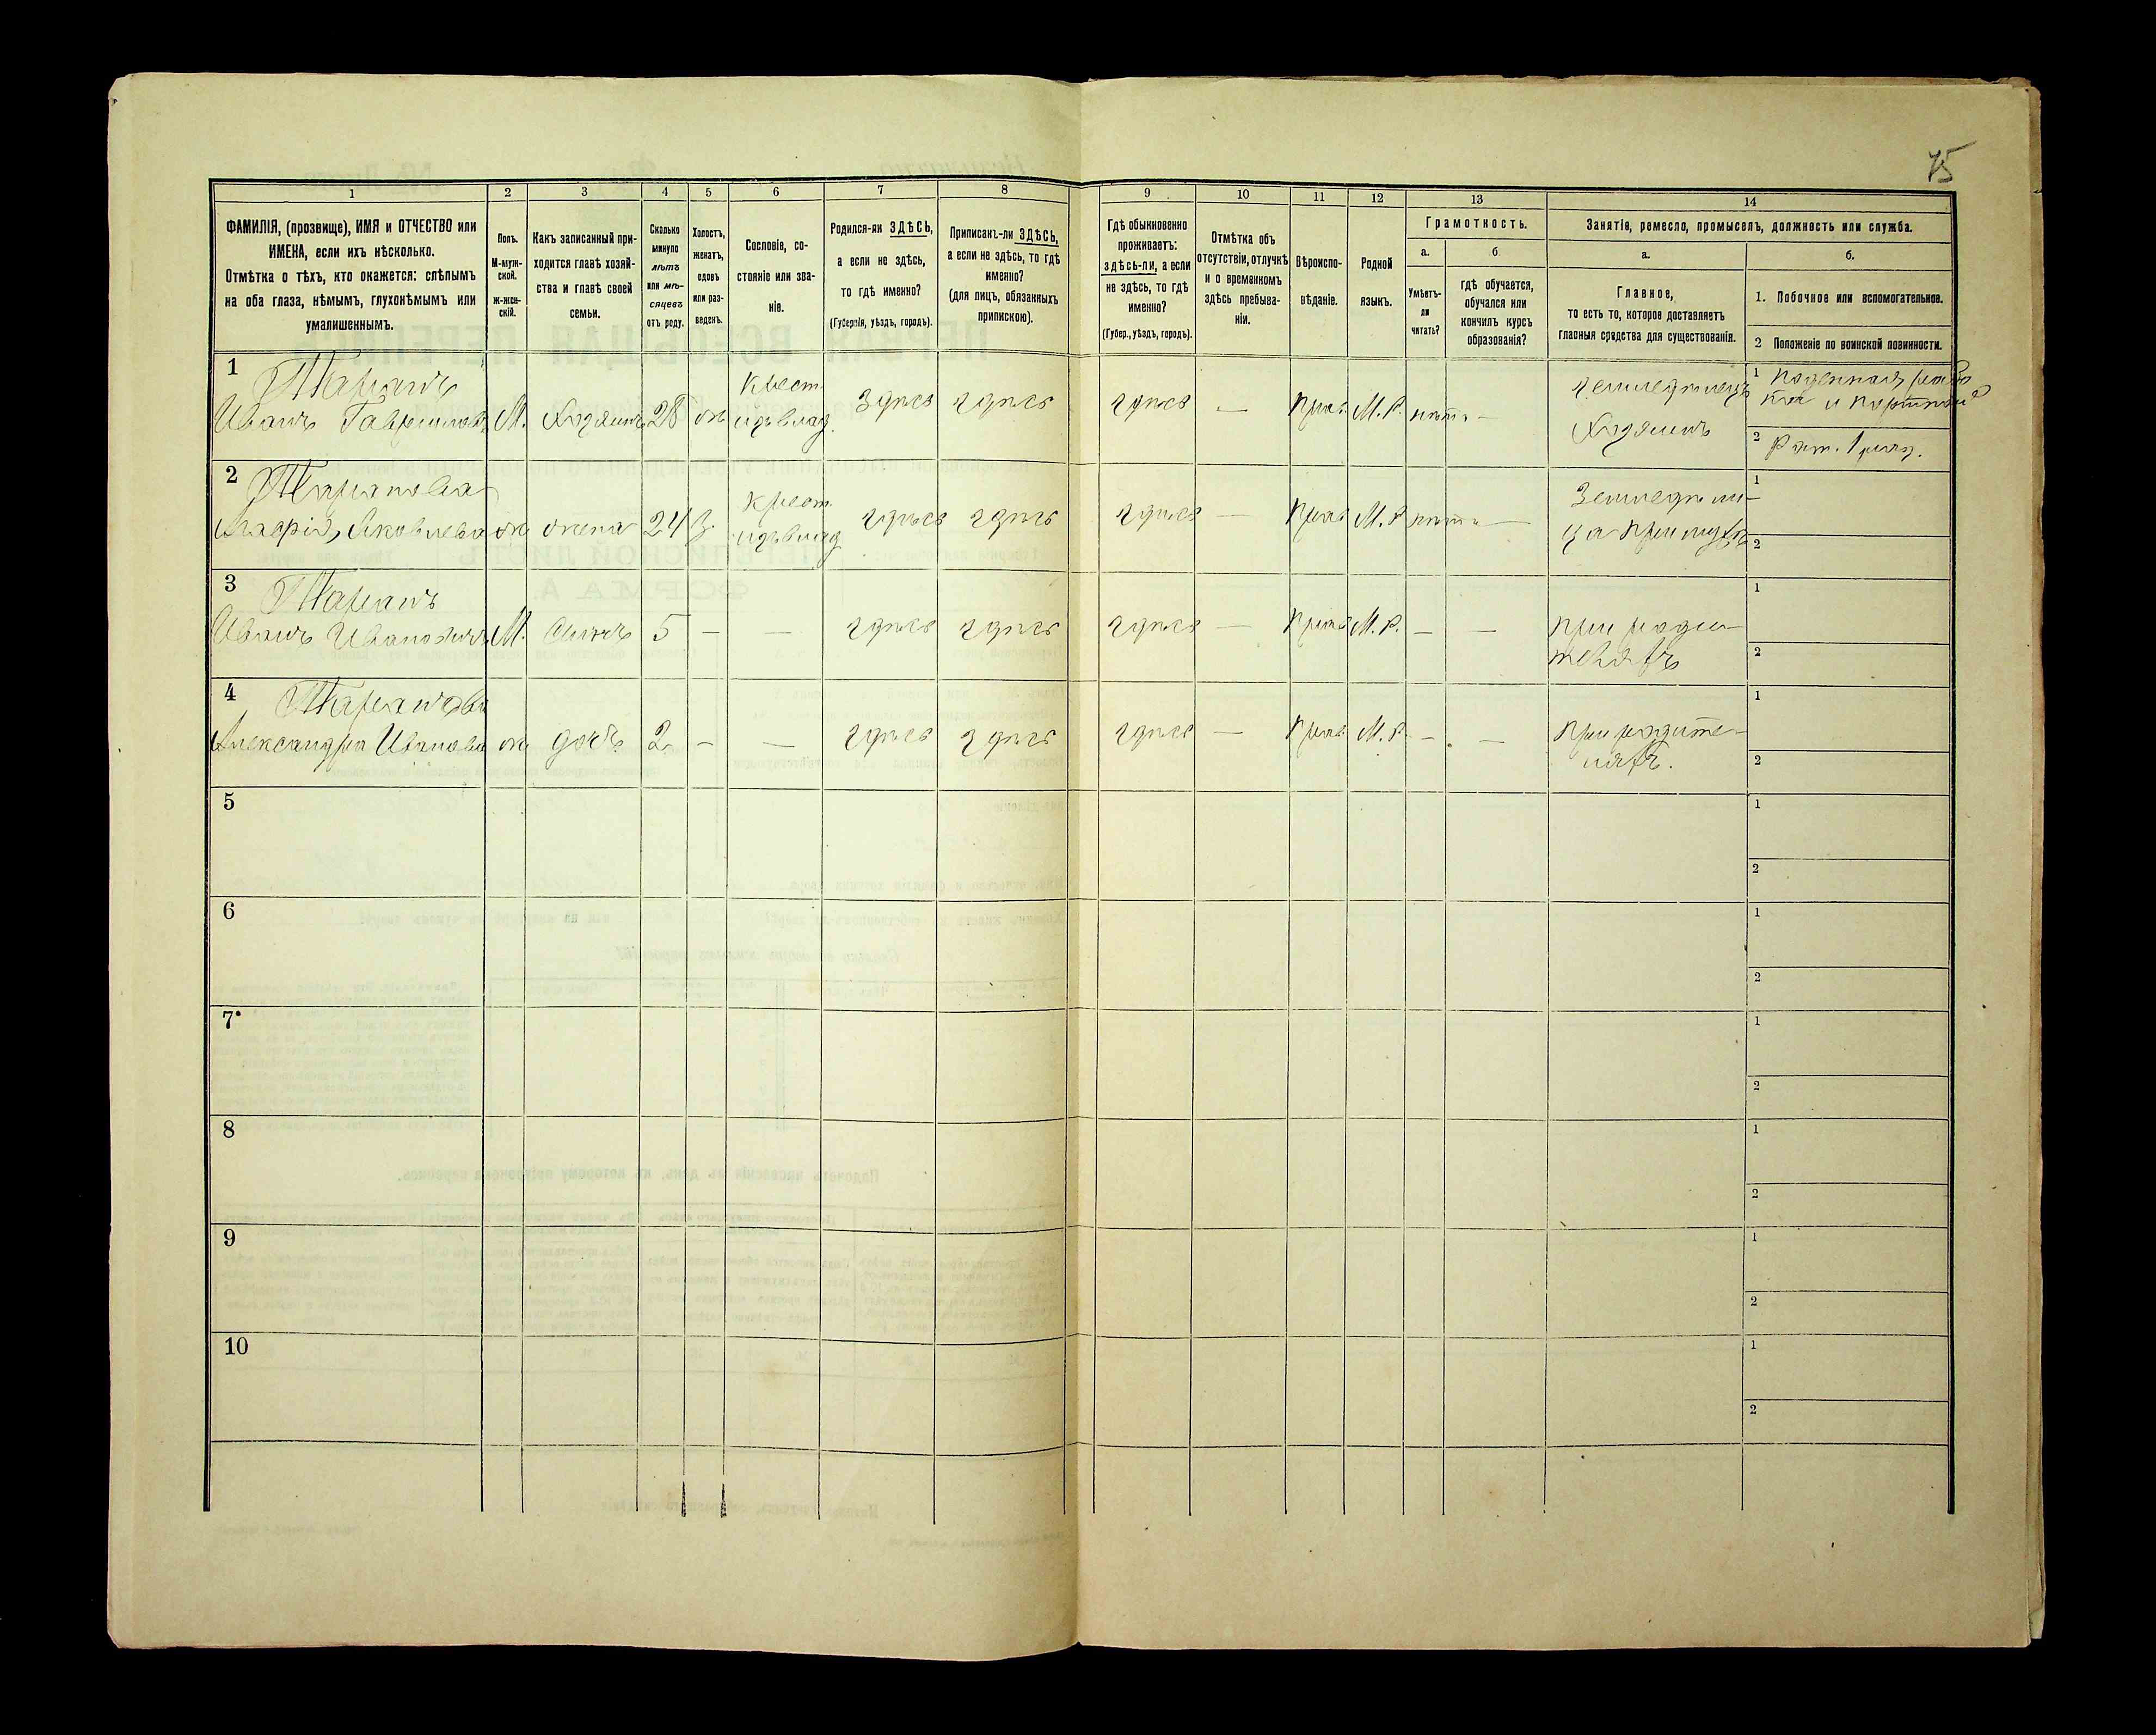 75
1
2
3
4
5
6
7
8
9
10
11
12
13
14
ФАМИЛІЯ, (прозвище), ИМЯ и ОТЧЕСТВО или
ИМЕНА, если ихъ нѣсколько.
Отмѣтка о тѣхъ, кто окажется: слѣпымъ
на оба глаза, нѣмымъ, глухонѣмымъ или
умалишеннымъ.
Полъ.
М-муж-
ской.
ж-жен-
скій.
Какъ записанный при-
ходится главѣ хозяй-
ства и главѣ своей
семьи.
Сколько
минуло
лѣтъ
или мѣ-
сяцевъ
отъ роду.
Холостъ,
женатъ,
вдовъ
или раз-
веденъ.
Сословіе, со-
стояніе или зва-
ніе.
Родился-ли ЗДѢСЬ,
а если не здѣсь,
то гдѣ именно?
(Губернія, уѣздъ, городъ).
Приписанъ-ли ЗДѢСЬ,
а если не здѣсь, то гдѣ
именно?
(для лицъ, обязанныхъ
припискою).
Гдѣ обыкновенно
проживаетъ:
здѣсь-ли, а если
не здѣсь, то гдѣ
именно?
(Губер., уѣздъ, городъ).
Отмѣтка объ
отсутствіи, отлучкѣ
и о временномъ
здѣсь пребыва-
ніи.
Вѣроиспо-
вѣданіе.
Родной
языкъ.
Грамотность.
а.
б.
Умѣетъ-
ли
читать?
гдѣ обучается,
обучался или
кончилъ курсъ
образованія?
Занятіе, ремесло, промыселъ, должность или служба.
а.
б.
Главное,
то есть то, которое доставляетъ
главныя средства для существованія.
1. Побочное или вспомогательное.
2 Положеніе по воинской повинности.
1 Таранъ
Иванъ Гавриловъ М. Хозяинъ 28 ж. Крест. здѣсь здѣсь здѣсь — Прав. М.Р. нѣтъ — Земледѣлецъ
Хозяинъ
1 Поденная
и
2 Рат. 1 разр.
2 Таранова
Яковлева ж жена 24 з. Крест. здѣсь здѣсь здѣсь — Прав М.Р нѣтъ — Земледѣли-
ца при мужѣ
1
2
3 Таранъ
Иванъ Ивановичъ М. Сынъ 5 — — здѣсь здѣсь здѣсь — Прав М.Р. — — при роди-
теляхъ
1
2
4 Таранова
Александра Иванова ж дочь 2 — — здѣсь здѣсь здѣсь — Прав М.Р. — — При родите-
ляхъ.
1
2
5
1
2
6
1
2
7
1
2
8
1
2
9
1
2
10
1
2